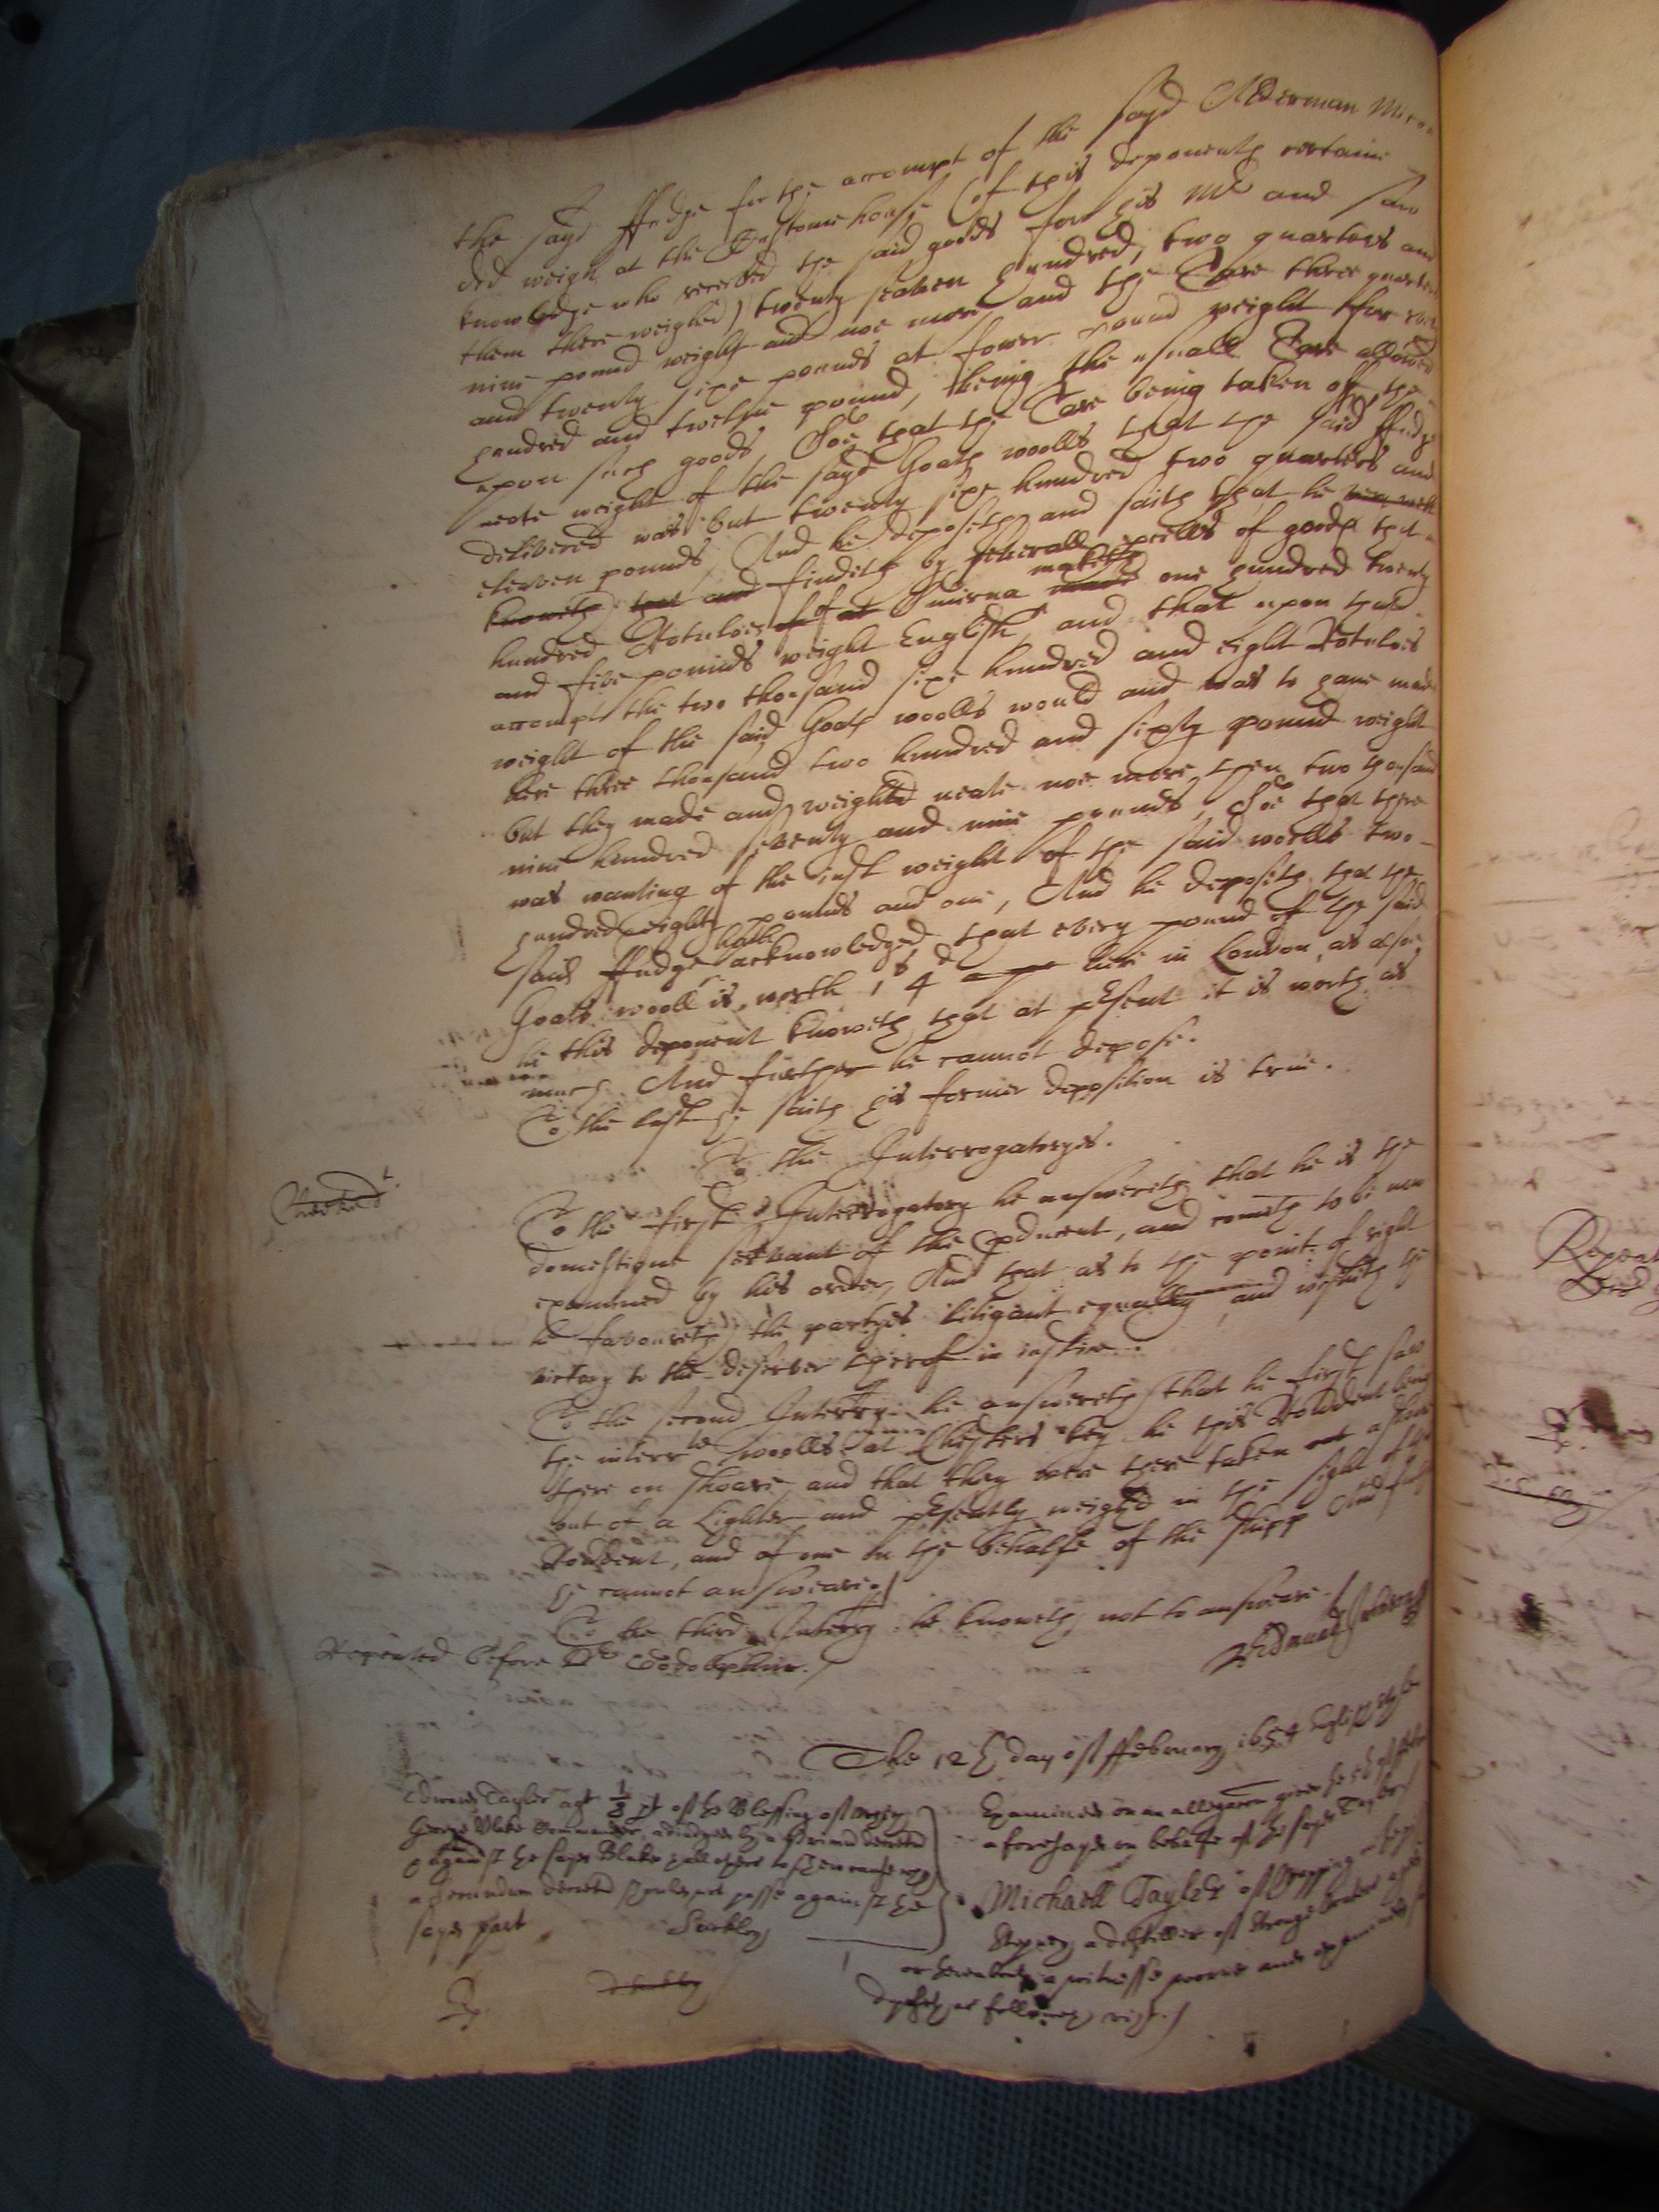 the sayd ffudge for the accompt of the sayd Alderman
did weigh at the Customehouse (of this deponents certaine
knowledge who received the said goods for his Mr and saw
them there weighed) twenty seaven hundred, two quarters and
nine pound weight and noe more, and the Tare three quarters
and twenty sixe pounds at fower pound weight for
hundred and twelve pound, being the usuall Tare allowed
upon such goods, Soe that the Tare being taken off, the
neate weight of the sayd Goats woolls that the said ffudge
delivered was but twenty sixe hundred two quarters and
eleaven pounds, And he deposeth and saith that he
knoweth that and findeth by severall pcells of goods that a
hundred Rotuloes of at Smirna maketh one hundred twenty
and five pounds weight English, and that upon that
accompt the two thousand sixe hundred and eight Rotuloes
weight of the said Goats woolls would and was to have made
here three thousand two hundred and sixty pound weight
but they made and weighed neate noe more then two thousand
nine hundred seventy and nine pounds, Soe that there
was wanting of the just weight of the said woolls two
hundred eighty pounds and one, And he deposeth that the
said ffudge hath acknowledged that every pound of the said
Goats wooll is worth 1s 4d here in London, as alsoe
he this deponent knoweth that at psent it is worth as
much. And further he cannot depose.
To the last he saith his former deposition is true.
To the Interrogatoryes.
To the first Interrogatory he answereth that he is the
domestique servant of the pducent, and cometh to be
examined by his order, And that as to the point of right
he favoureth the partyes litigant equally and wisheth the
victory to the deserver thereof in justice.
To the second Interry he answereth that he first saw
the interrte woolls at Chesters key he this Rondent being
there on shoare, and that they were there taken out ashoare
out of a Lighter and psently weighed in the sight of this
Rondent, and of one on the behalfe of the shipp And
he cannot answeare./
To the third Interry he knoweth not to answeare./
Repeated before Dr Godolphin./
The 12th day of ffebruary 1654 English style
Edward Tayler agt 1/8 pt of the Blessing of
George Blake Commander, adiudged by a primum decretum
against the sayd Blake
a secundum decretum should not passe against the
sayd part Suckley
Examined on an allegacon given
aforesayd on behalfe of the sayd Tayler
Michaell Tayler of Wapping
Stepney a distiller of Strong
or thereabouts a witnesse sworne and examined
deposeth as followeth vizt./